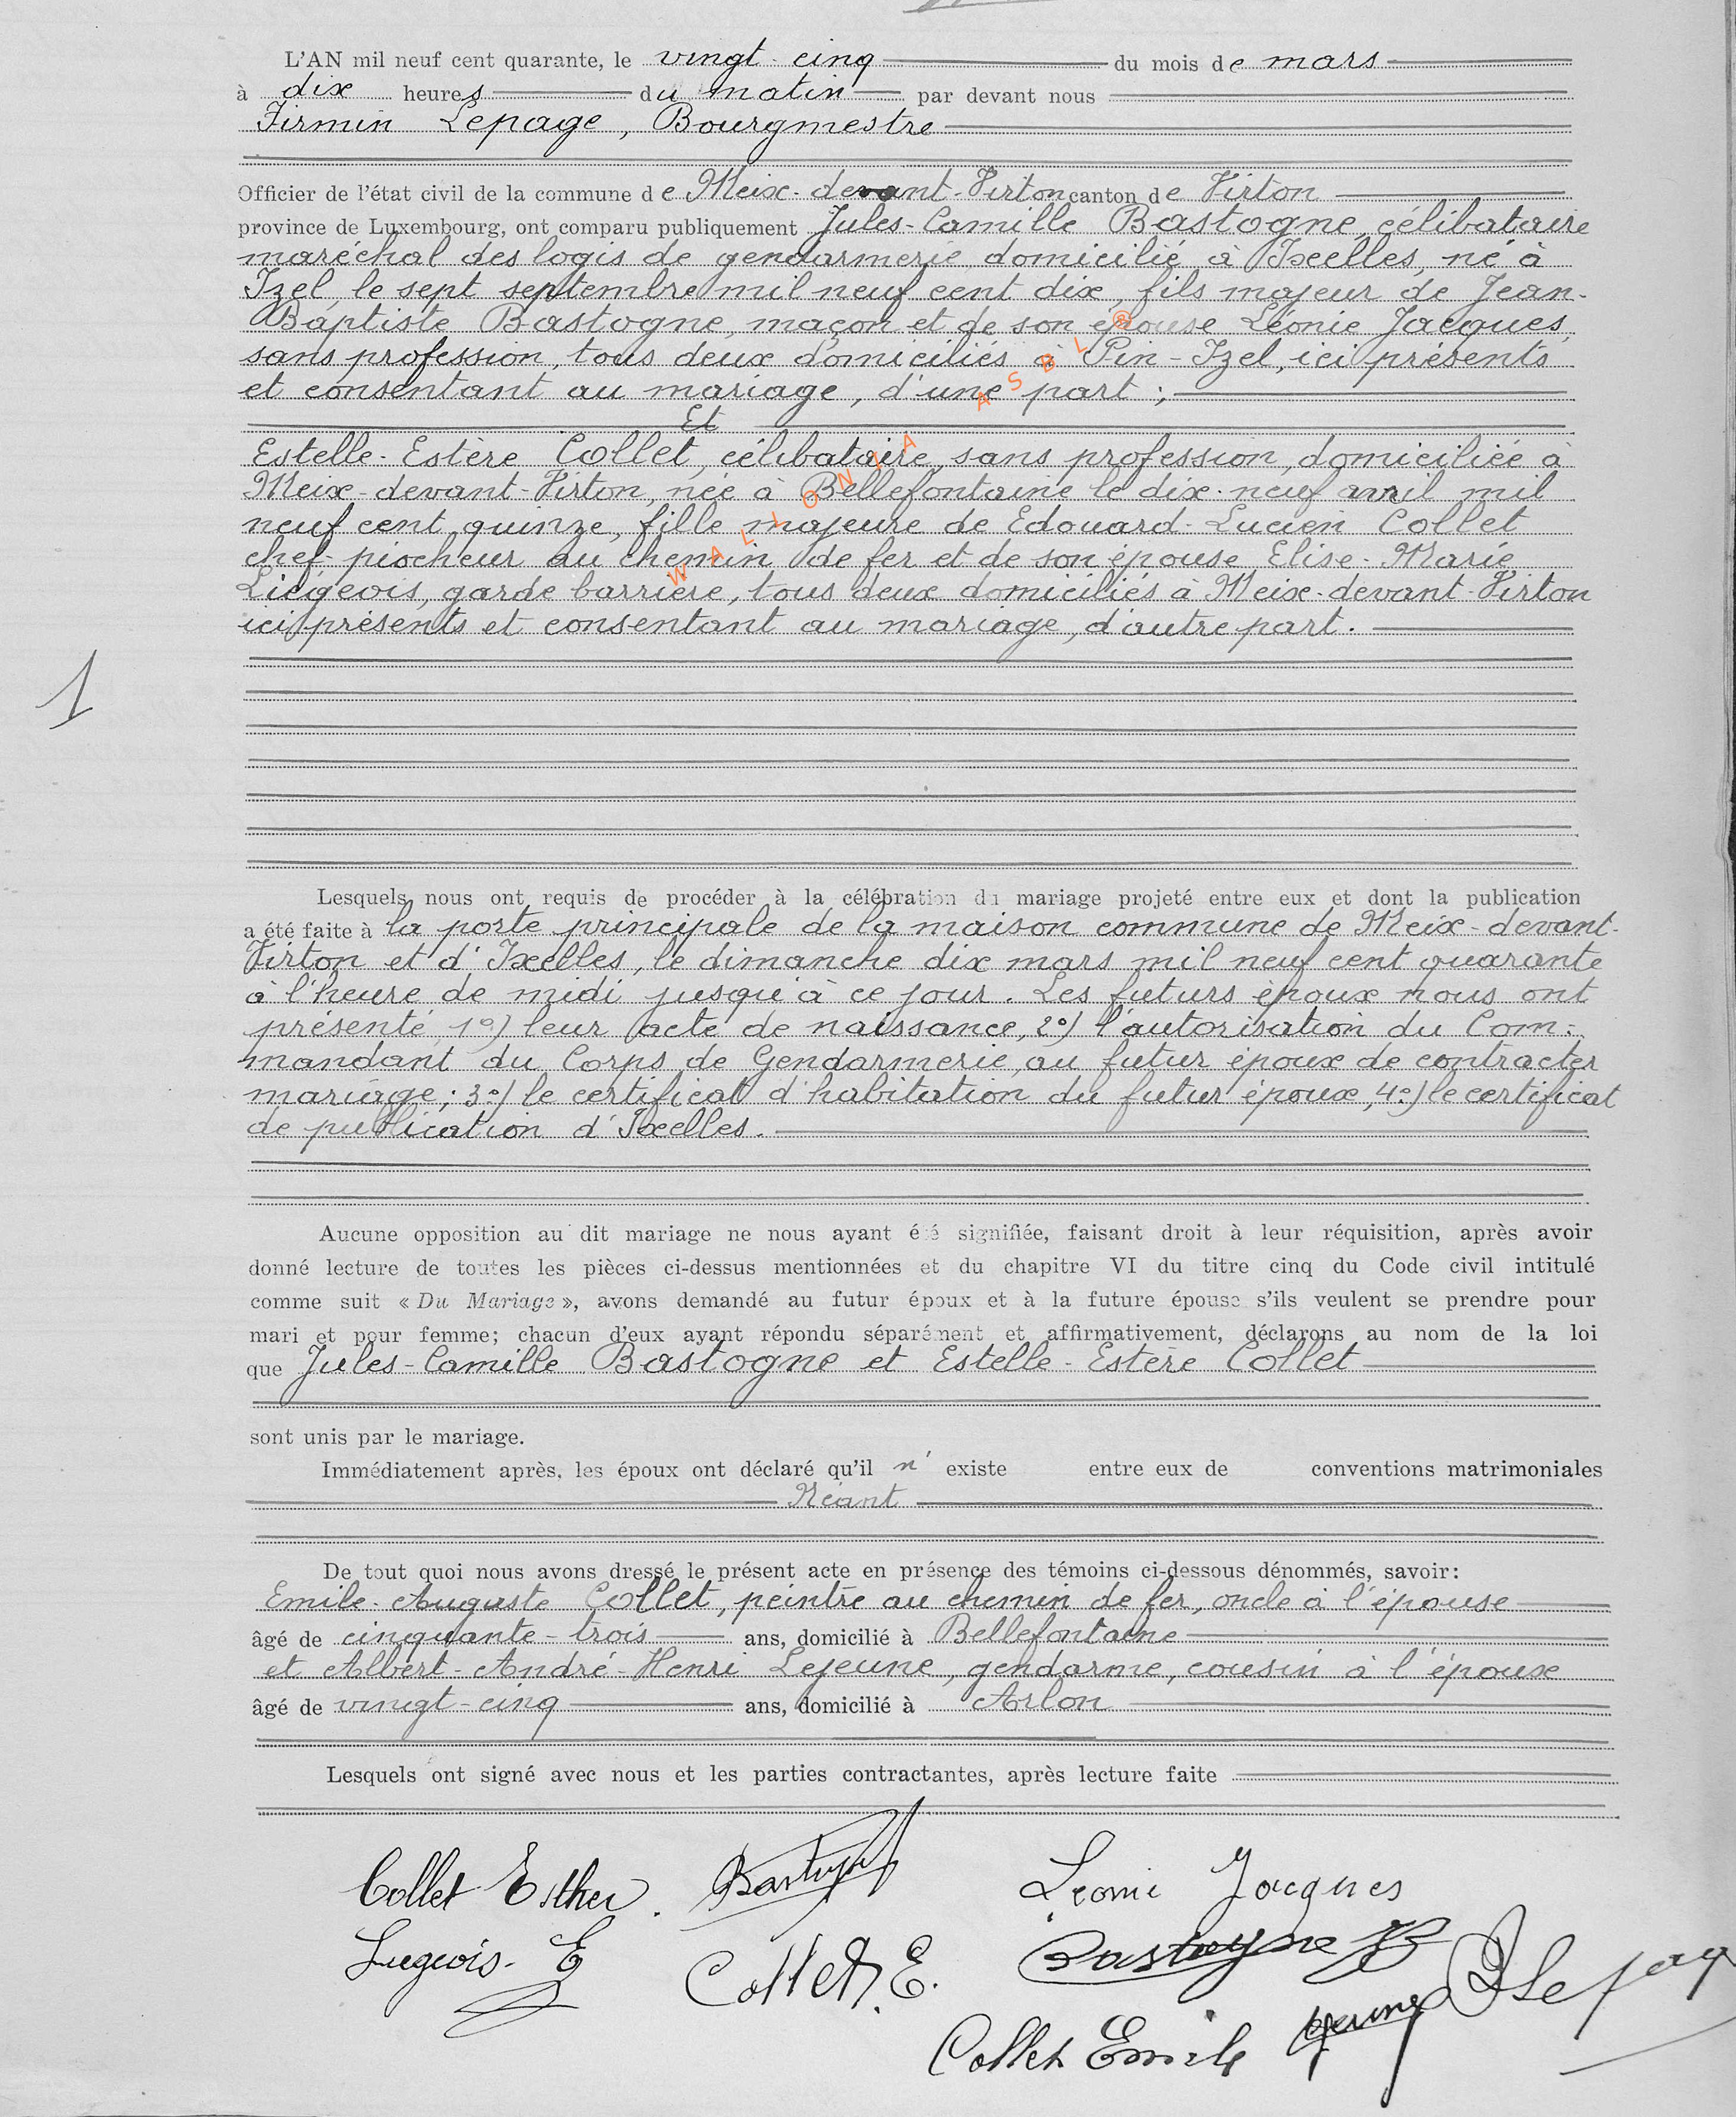 L'AN mil neuf cent quarante, le vingt-cinq du mois de mars
à dix heures du matin par devant nous
Firmin Lepage, Bourgmestre
Officier de l'état civil de la commune de Meix-devant-Virton canton de Virton
province de Luxembourg, ont comparu publiquement Jules-Camille Bastogne, célibataire
maréchal des logis de gendarmerie, domicilié à Ixelles, né à
Izel, le sept septembre mil neuf cent dix, fils majeur de Jean-
Baptiste Bastogne, maçon et de son épouse Léonie Jacques,
sans profession, tous deux domiciliés à Pin-Izel, ici présents
et consentant au mariage, d'une part ;
Et
Estelle-Estère Collet, célibataire, sans profession, domiciliée à
Meix-devant-Virton, née à Bellefontaine le dix-neuf avril mil
neuf cent quinze, fille majeure de Edouard-Lucien Collet
chef-piocheur au chemin de fer et de son épouse Elise-Marie
Liégeois, garde barrière, tous deux domiciliés à Meix-devant-Virton
ici présents et consentant au mariage, d'autre part.
1
WALLONIA ASBL ®
Lesquels nous ont requis de procéder à la célébration du mariage projeté entre eux et dont la publication
a été faite à la porte principale de la maison commune de Meix-devant-
Virton et d'Ixelles, le dimanche dix mars mil neuf cent quarante
à l'heure de midi jusqu'à ce jour. Les futurs époux nous ont
présenté 1°) leur acte de naissance, 2°) l'autorisation du Com-
mandant du Corps de Gendarmerie, au futur époux de contracter
mariage; 3°) le certificat d'habitation du futur époux, 4°) le certificat
de publication d'Ixelles.
Aucune opposition au dit mariage ne nous ayant été signifiée, faisant droit à leur réquisition, après avoir
donné lecture de toutes les pièces ci-dessus mentionnées et du chapitre VI du titre cinq du Code civil intitulé
comme suit « Du Mariage », avons demandé au futur époux et à la future épouse s'ils veulent se prendre pour
mari et pour femme; chacun d'eux ayant répondu séparément et affirmativement, déclarons au nom de la loi
que Jules-Camille Bastogne et Estelle-Estère Collet
sont unis par le mariage.
Immédiatement après, les époux ont déclaré qu'il n' existe entre eux de conventions matrimoniales
Néant
De tout quoi nous avons dressé le présent acte en présence des témoins ci-dessous dénommés, savoir:
Emile-Auguste Collet, peintre au chemin de fer, oncle à l'épouse
âgé de cinquante-trois ans, domicilié à Bellefontaine
et Albert-André-Henri Lejeune, gendarme, cousin à l'époux
âgé de vingt-cinq ans, domicilié à Arlon
Lesquels ont signé avec nous et les parties contractantes, après lecture faite
Collet Esther. Leonie Jacques
E Collet. E. Bastogne JB
Collet Emile